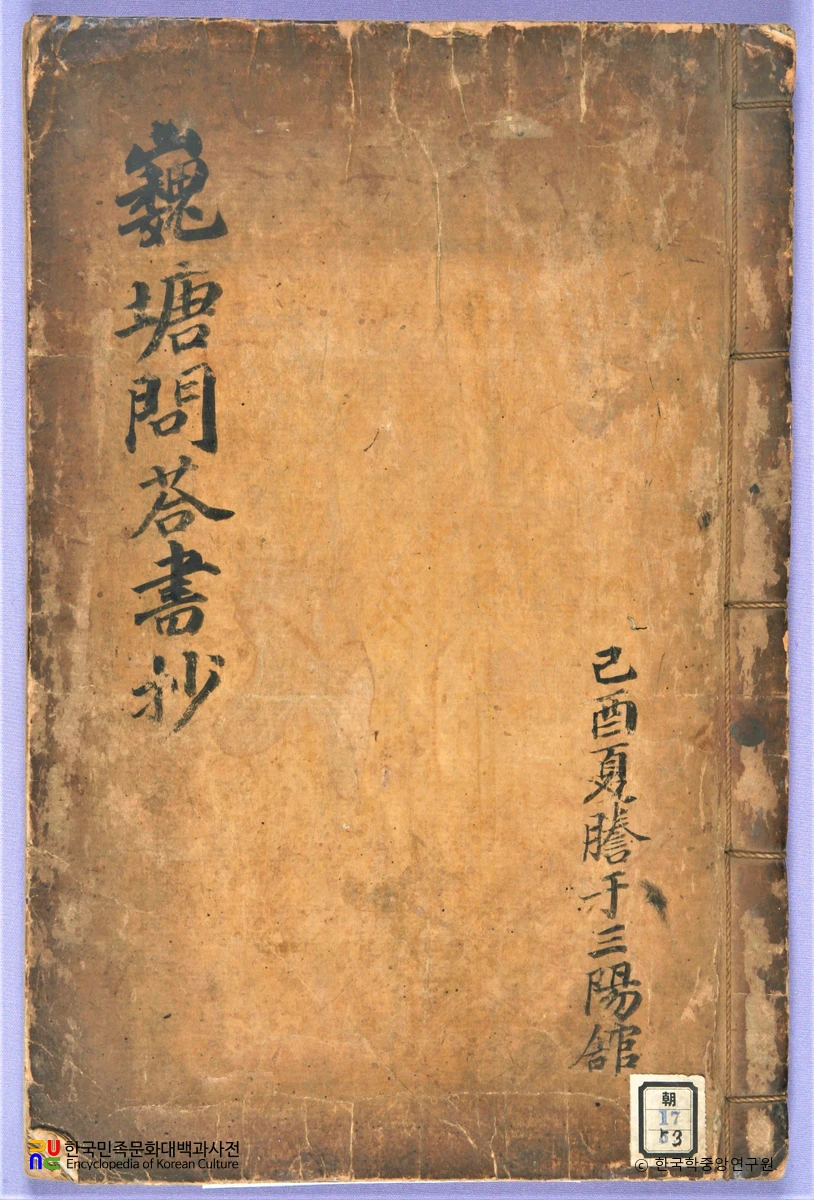 巍塘問答書抄
己酉夏謄于三陽舘
朝
17
53
한국민족문화대백과사전
Encyclopedia of Korean Culture
© 한국학중앙연구원